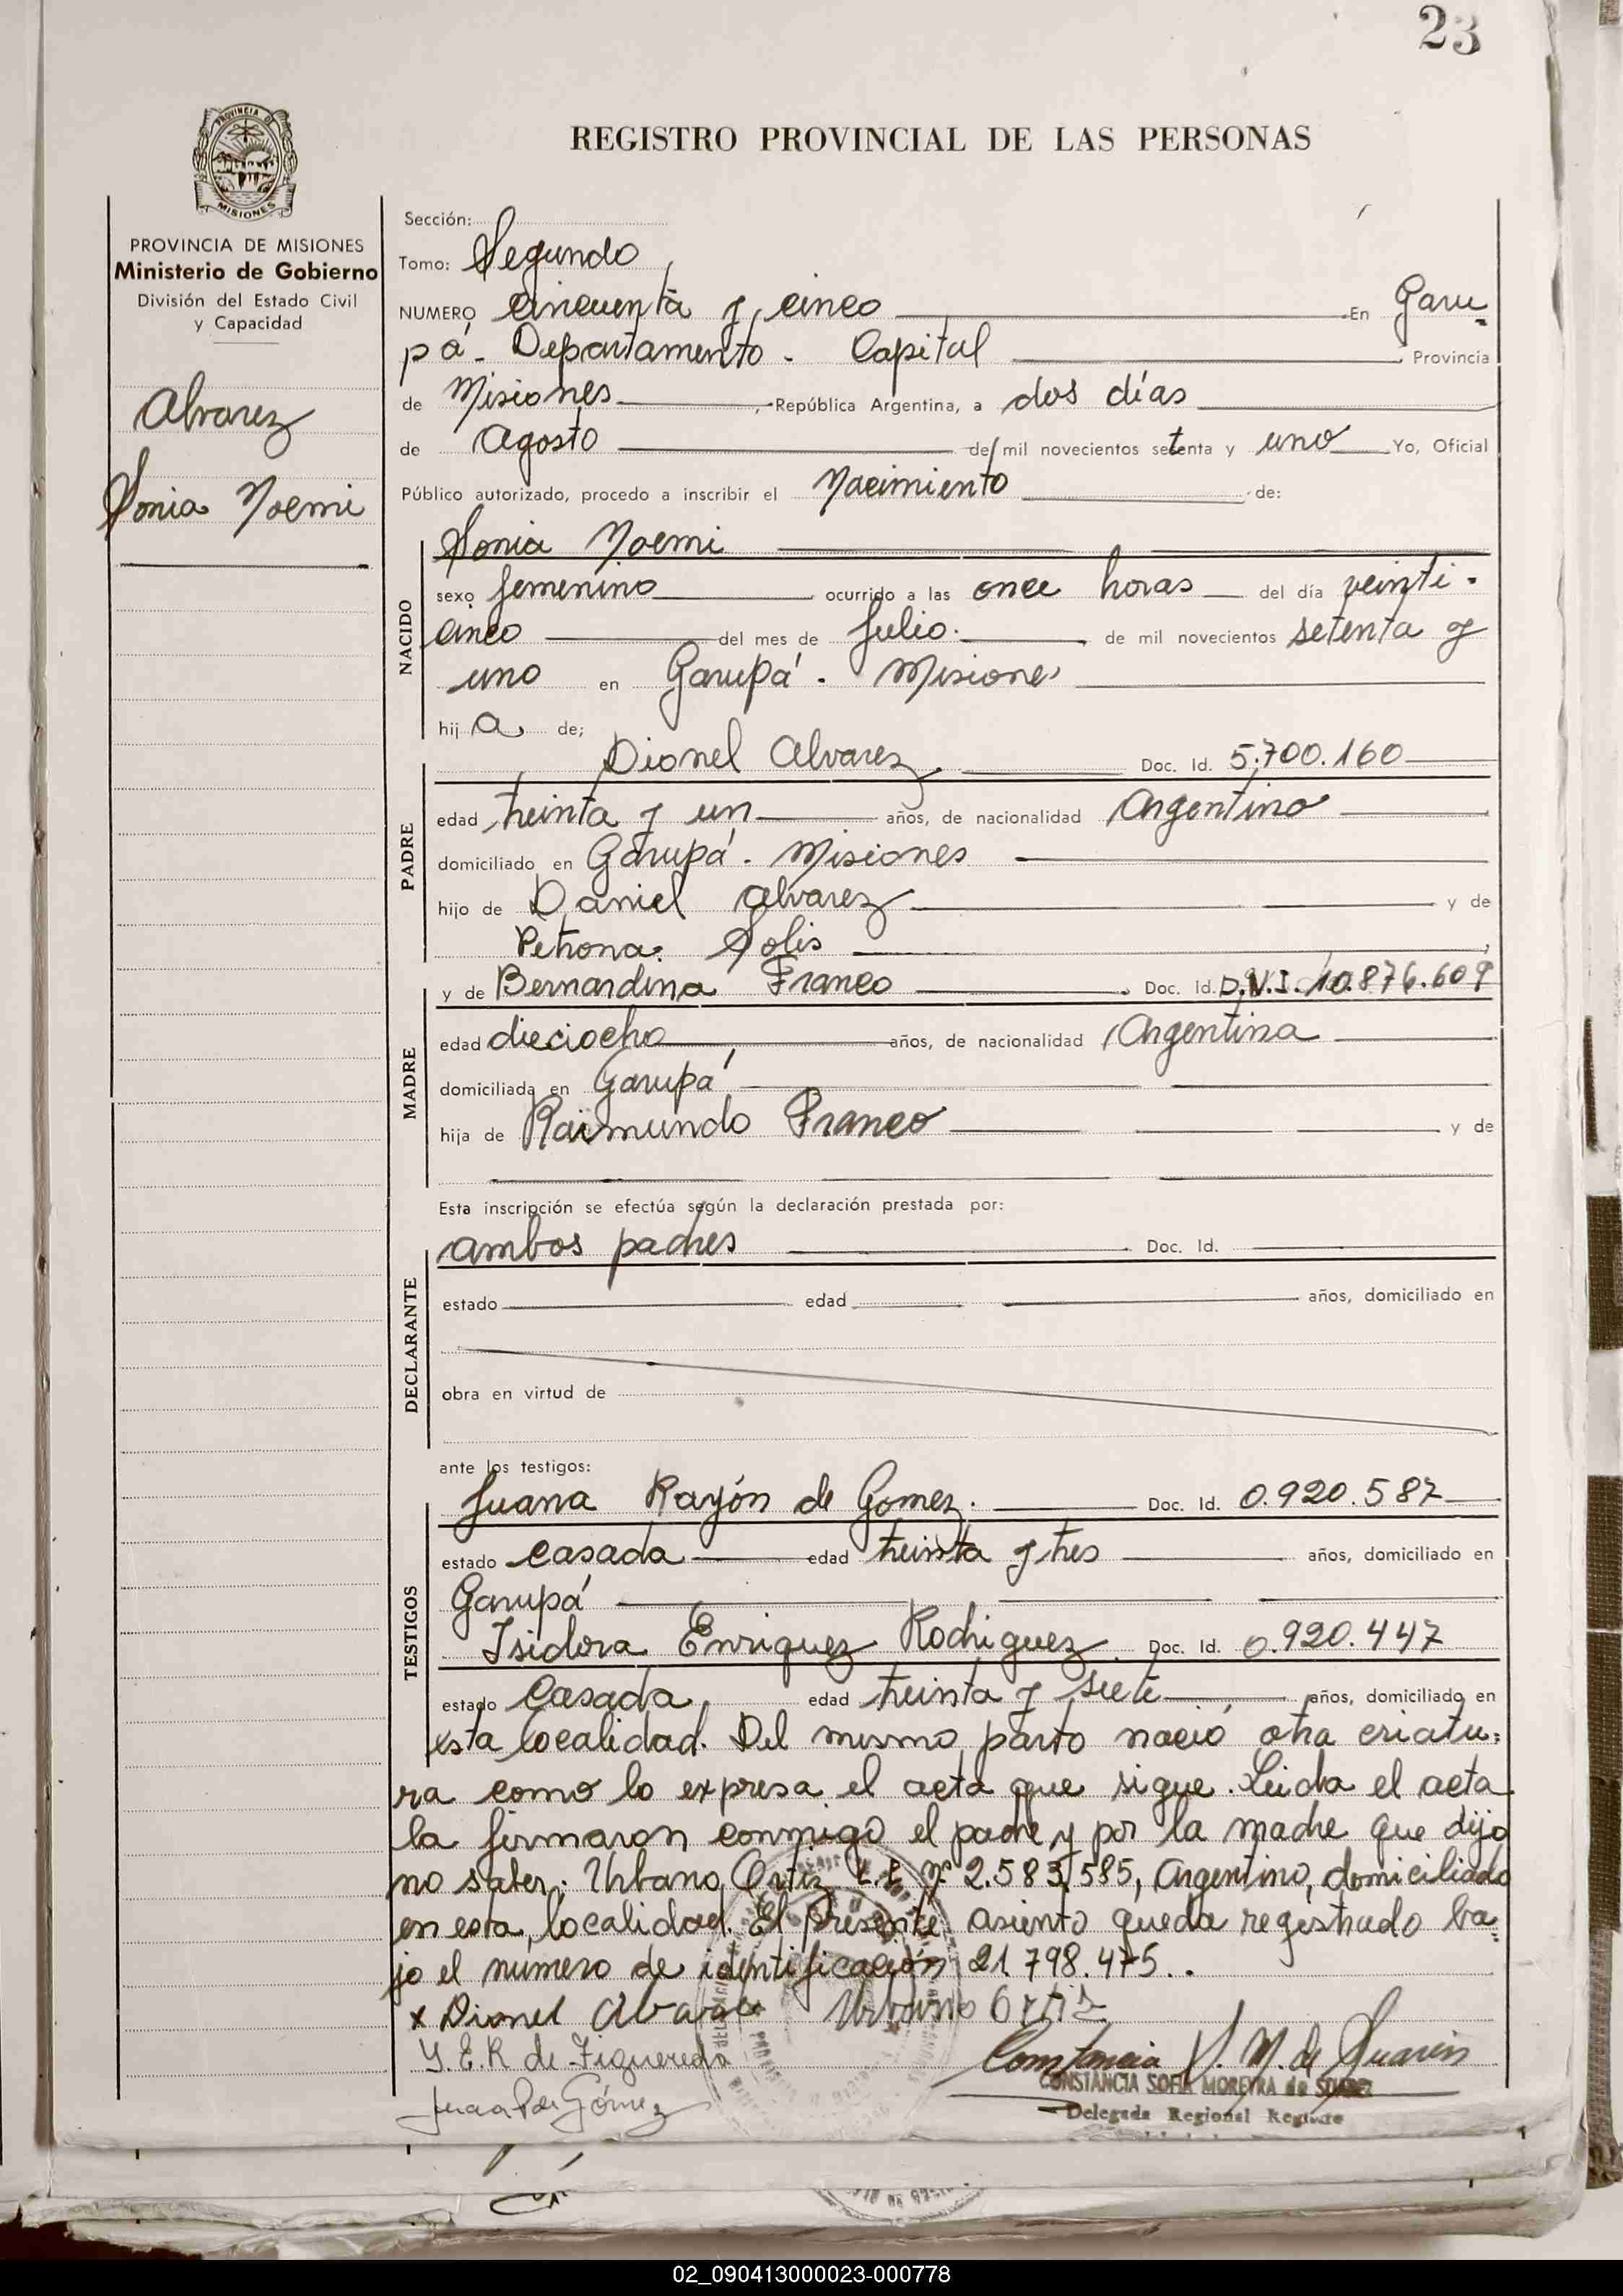 23
PROVINCIA DE
MISIONES
REGISTRO PROVINCIAL DE LAS PERSONAS
PROVINCIA DE MISIONES
Ministerio de Gobierno
División del Estado Civil
y Capacidad
Alvarez
Sonia Noemi
Sección:
Tomo: Segundo
NUMERO cincuenta y cinco En Garu
pá - Departamento - Capital Provincia
de Misiones, República Argentina, a dos días
de Agosto de mil novecientos setenta y uno Yo, Oficial
Público autorizado, procedo a inscribir el Nacimiento de:
NACIDO
Sonia Noemi
sexo femenino ocurrido a las once horas del día veinti-
cinco del mes de Julio. de mil novecientos setenta y
uno en Garupá. Misiones
hij a de;
PADRE
Dionel Alvarez. Doc. Id. 5.700.160
edad treinta y un años, de nacionalidad Argentino
domiciliado en Garupá. Misiones
hijo de Daniel Alvarez y de
Petrona Solis
MADRE
y de Bernardina Franco Doc. Id. D.N.I. 10.876.609
edad dieciocho años, de nacionalidad Argentina
domiciliada en Garupá
hija de Raimundo Franco y de
Esta inscripción se efectúa según la declaración prestada por:
DECLARANTE
ambos padres Doc. Id.
estado edad años, domiciliado en
obra en virtud de
ante los testigos:
TESTIGOS
Juana Rayón de Gomez. Doc. Id. 0.920.587
estado casada edad treinta y tres años, domiciliado en
Garupá
Isidora Enriquez Rodriguez Doc. Id. 0.920.447
estado Casada, edad treinta y siete años, domiciliado en
esta localidad. Del mismo parto nació otra criatu-
ra como lo expresa el acta que sigue. Leida el acta
la firmaron conmigo el padre y por la madre que dijo
no saber. Urbano Ortiz L.E Nº 2.583.585, Argentino, domiciliado
en esta localidad. El presente asiento queda registrado ba-
jo el numero de identificación 21.798.475..
x Dionel Alvarez Urbano Ortiz
Y.E.R de Figueredo
Constancia S. M. de Suarez
CONSTANCIA SOFIA MOREYRA de SUAREZ
Juana R de Gómez
Delegada Regional
02_090413000023-000778